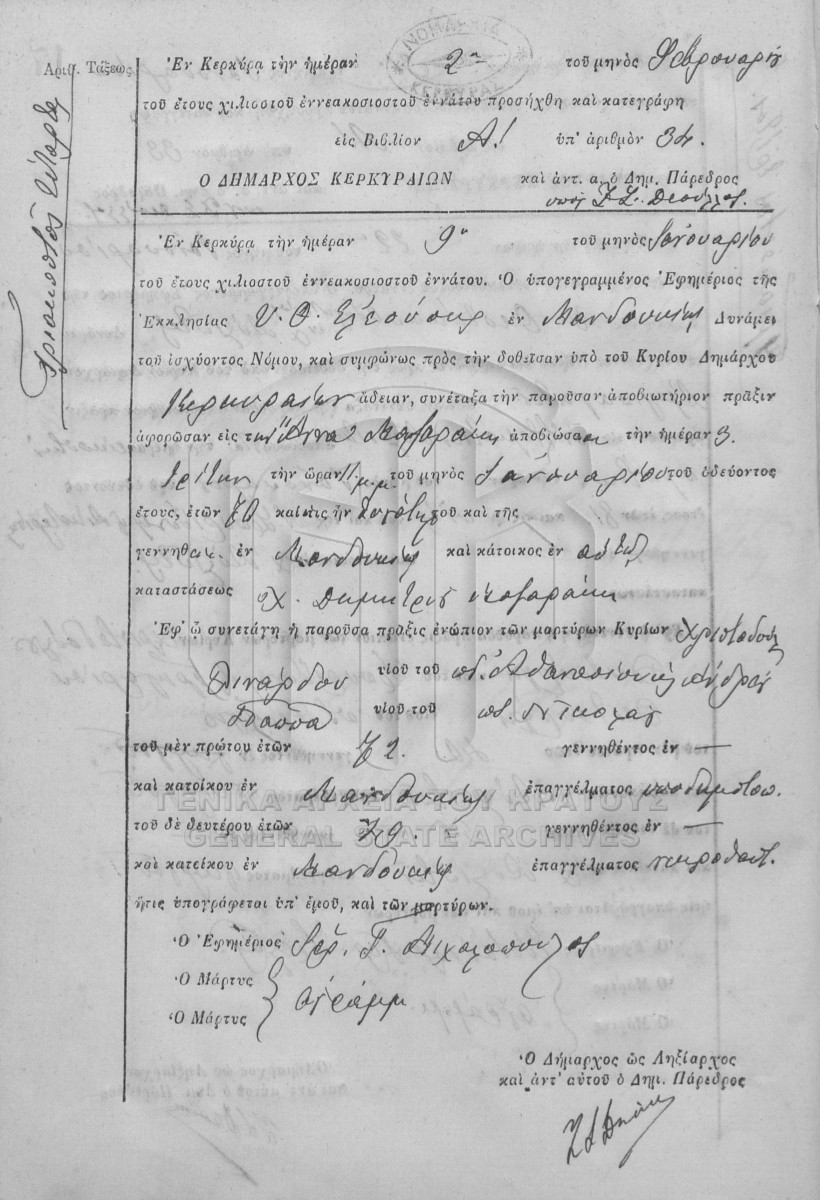 ΝΟΜΑΡΧΙΑ ΚΕΡΚΥΡΑΣ
Ἀριθ. Τάξεως
Τριακοστὸν τέταρτον
Ἐν Κερκύρᾳ τὴν ἡμέραν 2α τοῦ μηνὸς Φεβρουαρίου
τοῦ ἔτους χιλιοστοῦ ἐννεακοσιοστοῦ ἐννάτου προσήχθη καὶ κατεγράφη
εἰς Βιβλίον Α! ὑπ' ἀριθμὸν 34.
Ο ΔΗΜΑΡΧΟΣ ΚΕΡΚΥΡΑΙΩΝ καὶ ἀντ. α. ὁ Δημ. Πάρεδρος
Ἐν Κερκύρᾳ τὴν ἡμέραν 9η τοῦ μηνὸς Ἰανουαρίου
τοῦ ἔτους χιλιοστοῦ ἐννεακοσιοστοῦ ἐννάτου. Ὁ ὑπογεγραμμένος Ἐφημέριος τῆς
Ἐκκλησίας Υ. Θ. Ἐλεούσης ἐν Μανδουκίῳ Δυνάμει
τοῦ ἰσχύοντος Νόμου, καὶ συμφώνως πρὸς τὴν δοθεῖσαν ὑπὸ τοῦ Κυρίου Δημάρχου
Κερκυραίων ἄδειαν, συνέταξα τὴν παροῦσαν ἀποβιωτήριον πρᾶξιν
ἀφορῶσαν εἰς τὴν Ἄννα Μαζαράκη ἀποβιώσασα τὴν ἡμέραν 3.
τρίτην τὴν ὥραν 11 μ.μ. τοῦ μηνὸς Ἰανουαρίου τοῦ ὁδεύοντος
ἔτους, ἐτῶν 70 καὶ τις ἦν θυγάτηρ τοῦ καὶ τῆς
γεννηθεῖσα ἐν Μανδουκίῳ καὶ κάτοικος ἐν αὐτῷ
καταστάσεως χ. Δημητρίου Μαζαράκη
Ἐφ' ᾧ συνετάγη ἡ παροῦσα πρᾶξις ἐνώπιον τῶν μαρτύρων Κυρίων Χριστοδούλου
Λινάρδου υἱοῦ τοῦ ποτ. Ἀθανασίου καὶ Ἀνδρέου
Παππᾶ υἱοῦ τοῦ ποτ. Νικολάου
τοῦ μὲν πρώτου ἐτῶν 72 γεννηθέντος ἐν —
καὶ κατοίκου ἐν Μανδουκίῳ ἐπαγγέλματος ὑποδηματοπ.
τοῦ δὲ δευτέρου ἐτῶν 79 γεννηθέντος ἐν —
καὶ κατοίκου ἐν Μανδουκίῳ ἐπαγγέλματος νεκροθάπτ.
ἥτις ὑπογράφεται ὑπ' ἐμοῦ, καὶ τῶν μαρτύρων.
Ὁ Ἐφημέριος Ἱερ. Γ. Μιχαλόπουλος
Ὁ Μάρτυς
Ὁ Μάρτυς ἀγράμμ
Ὁ Δήμαρχος ὡς Ληξίαρχος
καὶ ἀντ' αὐτοῦ ὁ Δημ. Πάρεδρος
ΓΕΝΙΚΑ ΑΡΧΕΙΑ ΤΟΥ ΚΡΑΤΟΥΣ
GENERAL STATE ARCHIVES